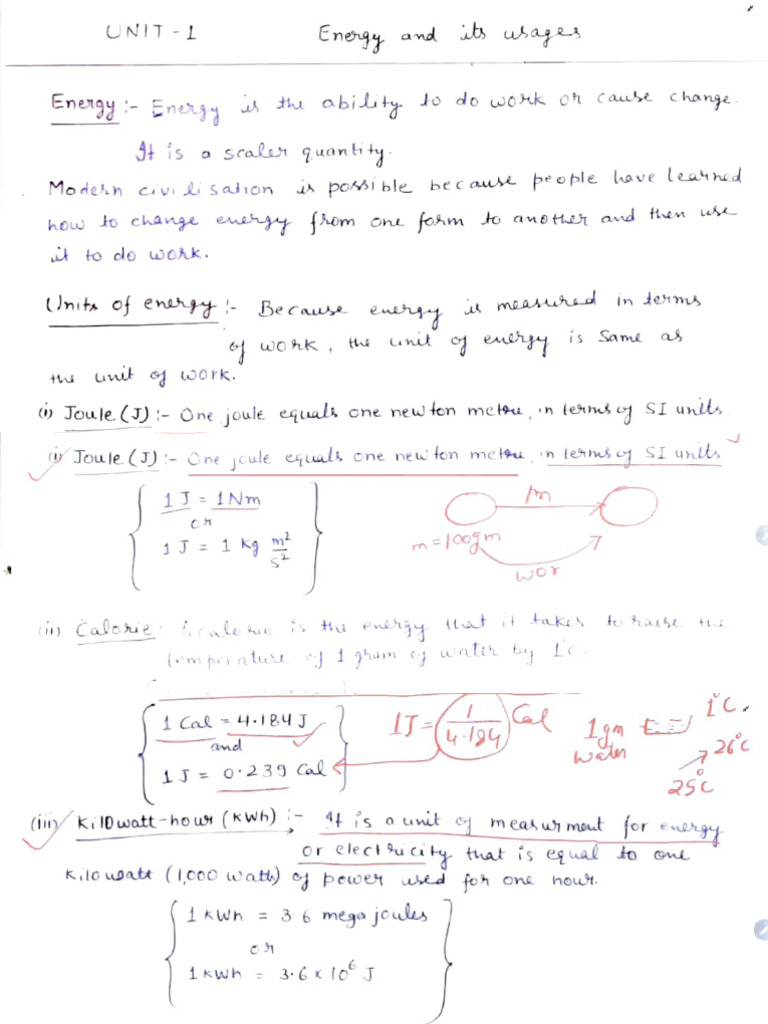 UNIT - 1 Energy and its usages
Energy :- Energy is the ability to do work or cause change.
It is a scaler quantity.
Modern civilisation is possible because people have learned
how to change energy from one form to another and then use
it to do work.
Units of energy :- Because energy is measured in terms
of work, the unit of energy is same as
the unit of work.
(i) Joule (J) :- One joule equals one newton metre, in terms of SI units
(i) Joule (J) :- One joule equals one newton metre, in terms of SI units
1 J = 1 Nm
or
1 J = 1 kg m²/s²
1m
m=100gm
wor
(ii) Calorie : A calorie is the energy that it takes to raise the
temperature of 1 gram of water by 1°C.
1 Cal = 4.184 J
and
1 J = 0.239 Cal
1J = 1/4.184 Cal
1gm
water
1°C
26°C
25°C
(iii) Kilowatt-hour (KWh) :- It is a unit of measurment for energy
or electricity that is equal to one
Kilowatt (1,000 watt) of power used for one hour.
1 KWh = 3.6 mega joules
or
1 KWh = 3.6 x 10⁶ J